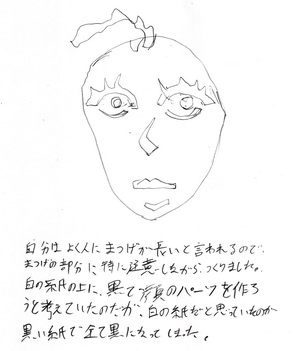 自分はよく人にまつげが長いと言われるので、
まつげの部分に特に注意しながらつくりました。
白の紙の上に、黒で顔のパーツを作ろ
うと考えていたのだが、白の紙だと思っていたのが
黒い紙で全て黒になってしました。